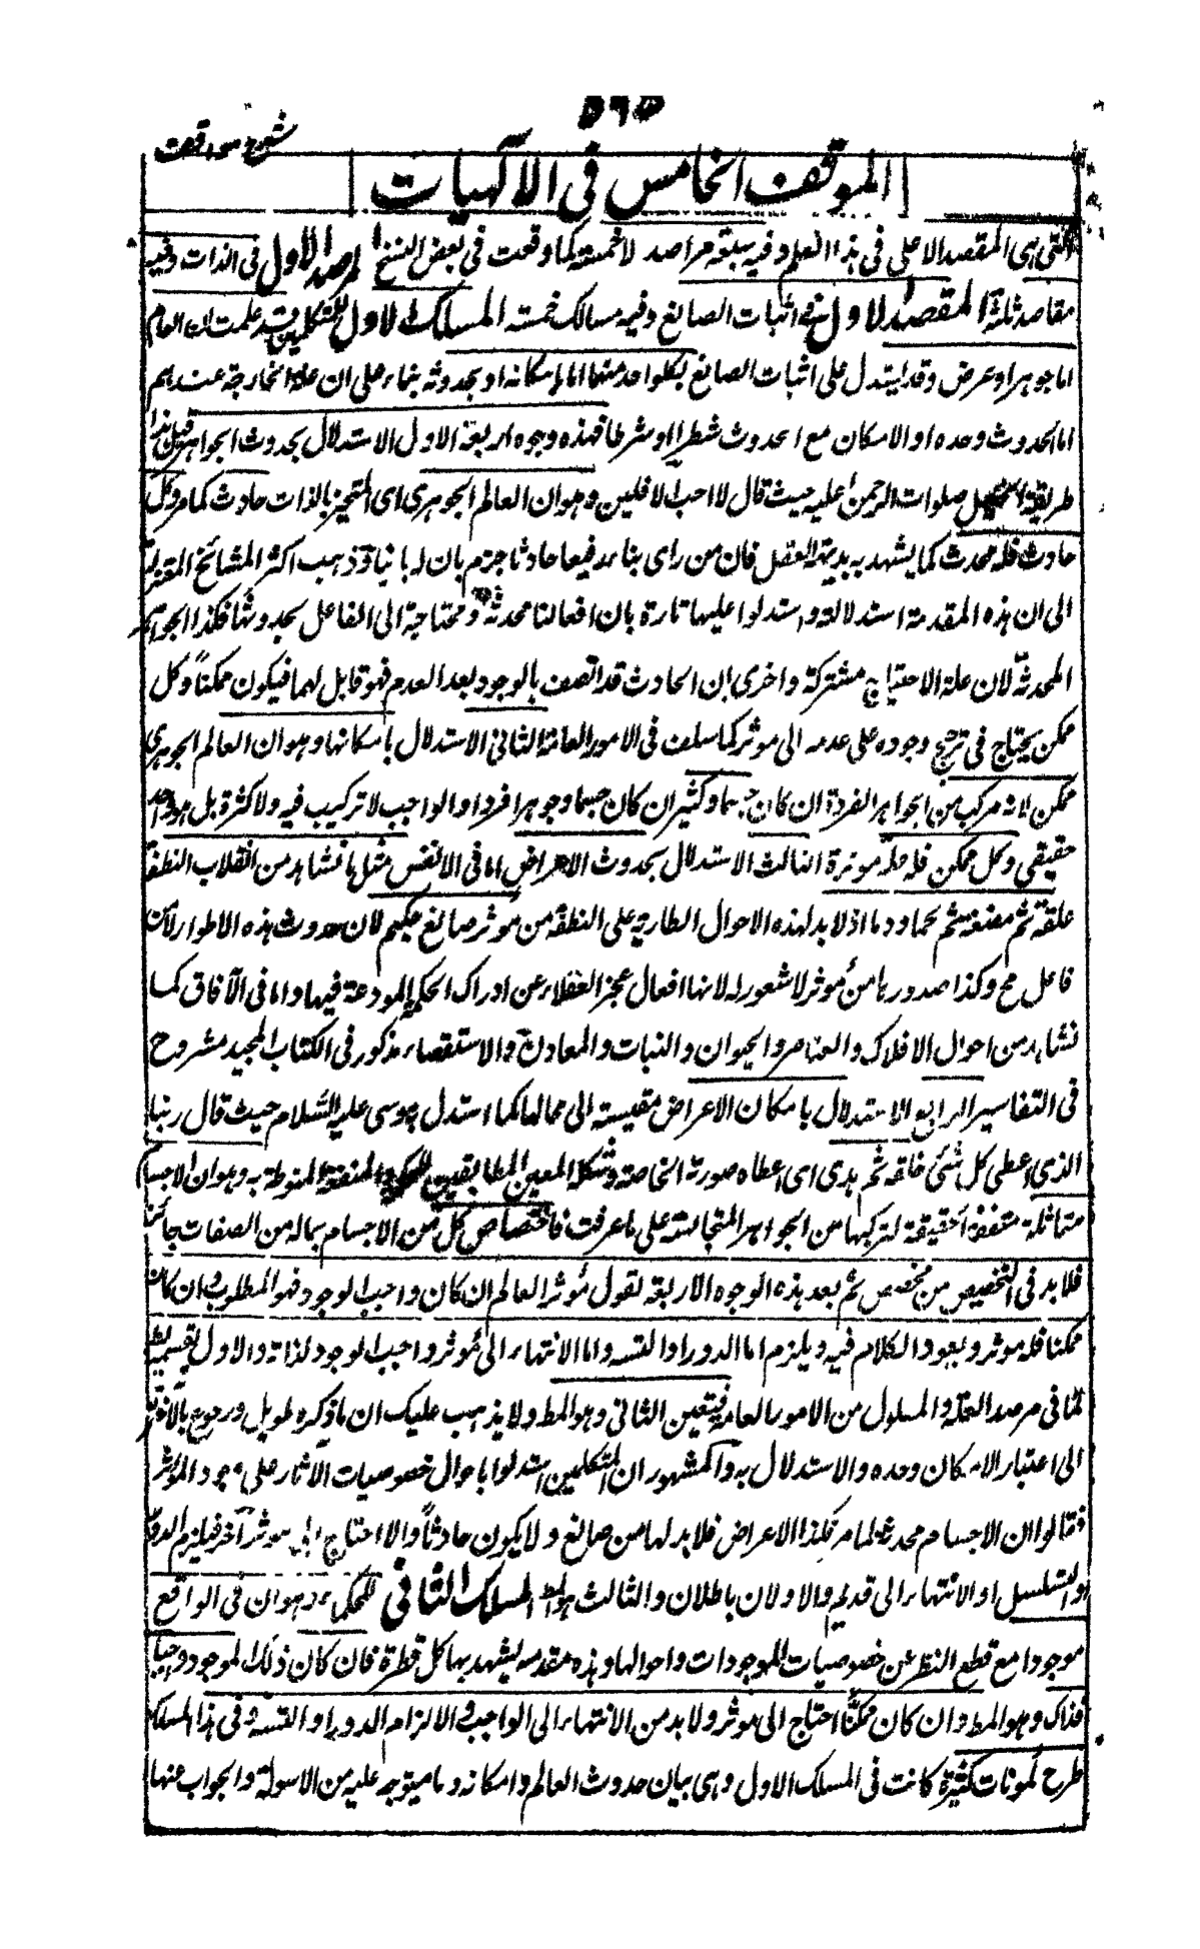 ٥٦٥
شرح مواقف
الموقف الخامس فى الآلهيات
التى هى المقصد الاعلى فى هذا العلم وفيه سبعة مراصد لا خمسة كما وقعت فى بعض النسخ المرصد الاول فى الذات وفيه
مقاصد ثلثة المقصد الاول فى اثبات الصانع وفيه مسالك خمسة المسلك الاول للمتكلمين قد علمت ان العالم
اما جوهر او عرض وقد يستدل على اثبات الصانع بكلواحد منهما اما بامكانه او بحدوثه بناء على ان علة الحاجة عندهم
اما الحدوث وحده او الامكان مع الحدوث شطرا او شرطا فهذه وجوه اربعة الاول الاستدلال بحدوث الجواهر قيل هذا
طريقة الخليل صلوات الرحمن عليه حيث قال لا احب الافلين وهو ان العالم الجوهرى اى المتحيز بالذات حادث كما مر وكل
حادث فله محدث كما يشهد به بديهة العقل فان من راى بناء رفيعا حادثا جزم بان له بانيا وذهب اكثر المشائخ المعتزلة
الى ان هذه المقدمة استدلالية واستدلوا عليها تارة بان افعالنا محدثة ومحتاجة الى الفاعل لحدوثها فكذا الجواهر
المحدثة لان علة الاحتياج مشتركة واخرى بان الحادث قد اتصف بالوجود بعد العدم فهو قابل لهما فيكون ممكنا وكل
ممكن يحتاج فى ترجح وجوده على عدمه الى موثر كما سلف فى الامور العامة الثانى الاستدلال بامكانها وهو ان العالم الجوهرى
ممكن لانه مركب من الجواهر الفردة ان كان جسما وكثير ان كان جسما وجوهرا فردا والواجب لا تركيب فيه ولا كثرة بل هو واحد
حقيقى وكل ممكن فله علة موثرة الثالث الاستدلال بحدوث الاعراض اما فى الانفس مثل ما نشاهد من انقلاب النطفة
علقة ثم مضغة ثم لحما ودما اذ لا بد لهذه الاحوال الطارية على النطفة من موثر صانع حكيم لان حدوث هذه الاطوار لا من
فاعل مح وكذا صدورها من موثر لا شعور له لانها افعال عجز العقلاء عن ادراك الحكم المودعة فيها واما فى الآفاق كما
نشاهد من احوال الافلاك والعناصر والحيوان والنبات والمعادن والاستقصاء مذكور فى الكتاب المجيد مشروح
فى التفاسير الرابع الاستدلال بامكان الاعراض مقيسة الى محالها كما استدل به موسى عليه السلام حيث قال ربنا
الذى اعطى كل شئى خلقه ثم هدى اى اعطاه صورته الخاصة وشكله المعين المطابقين للحكمة والمنفعة المنوطة به وهو ان الاجسام
متماثلة متفقة الحقيقة لتركبها من الجواهر المتجانسة على ما عرفت فاختصاص كل من الاجسام بما له من الصفات جائز
فلا بد فى التخصيص من مخصص ثم بعد هذه الوجوه الاربعة نقول موثر العالم ان كان واجب الوجود فهو المطلوب وان كان
ممكنا فله موثر ويعود الكلام فيه ويلزم اما الدور او التسه واما الانتهاء الى موثر واجب الوجود لذاته والاول بقسميه بط
لما فى مرصد العلة والمعلول من الامور العامة فيتعين الثانى وهو المط ولا يذهب عليك ان ما ذكره طويل ورجوع بالآخرة
الى اعتبار الامكان وحده والاستدلال به والمشهور ان المتكلمين استدلوا باحوال خصوصيات الآثار على وجود الموثر
فقالوا ان الاجسام محدثة لما مر فكذا الاعراض فلا بد لها من صانع ولا يكون حادثا والا احتاج الى موثر آخر فيلزم الدور
او التسلسل او الانتهاء الى قديم والاولان باطلان والثالث هو المط المسلك الثانى للحكماء وهو ان فى الواقع
موجودا مع قطع النظر عن خصوصيات الموجودات واحوالها وهذه مقدمة يشهد بها كل فطرة فان كان ذلك الموجود واجبا
فذاك وهو المط وان كان ممكنا احتاج الى موثر ولا بد من الانتهاء الى الواجب والا لزام الدور او التسه وفى هذا المسلك
طرح لمونات كثيرة كانت فى المسلك الاول وهى بيان حدوث العالم وامكانه وما يتوجه عليه من الاسولة والجواب عنها